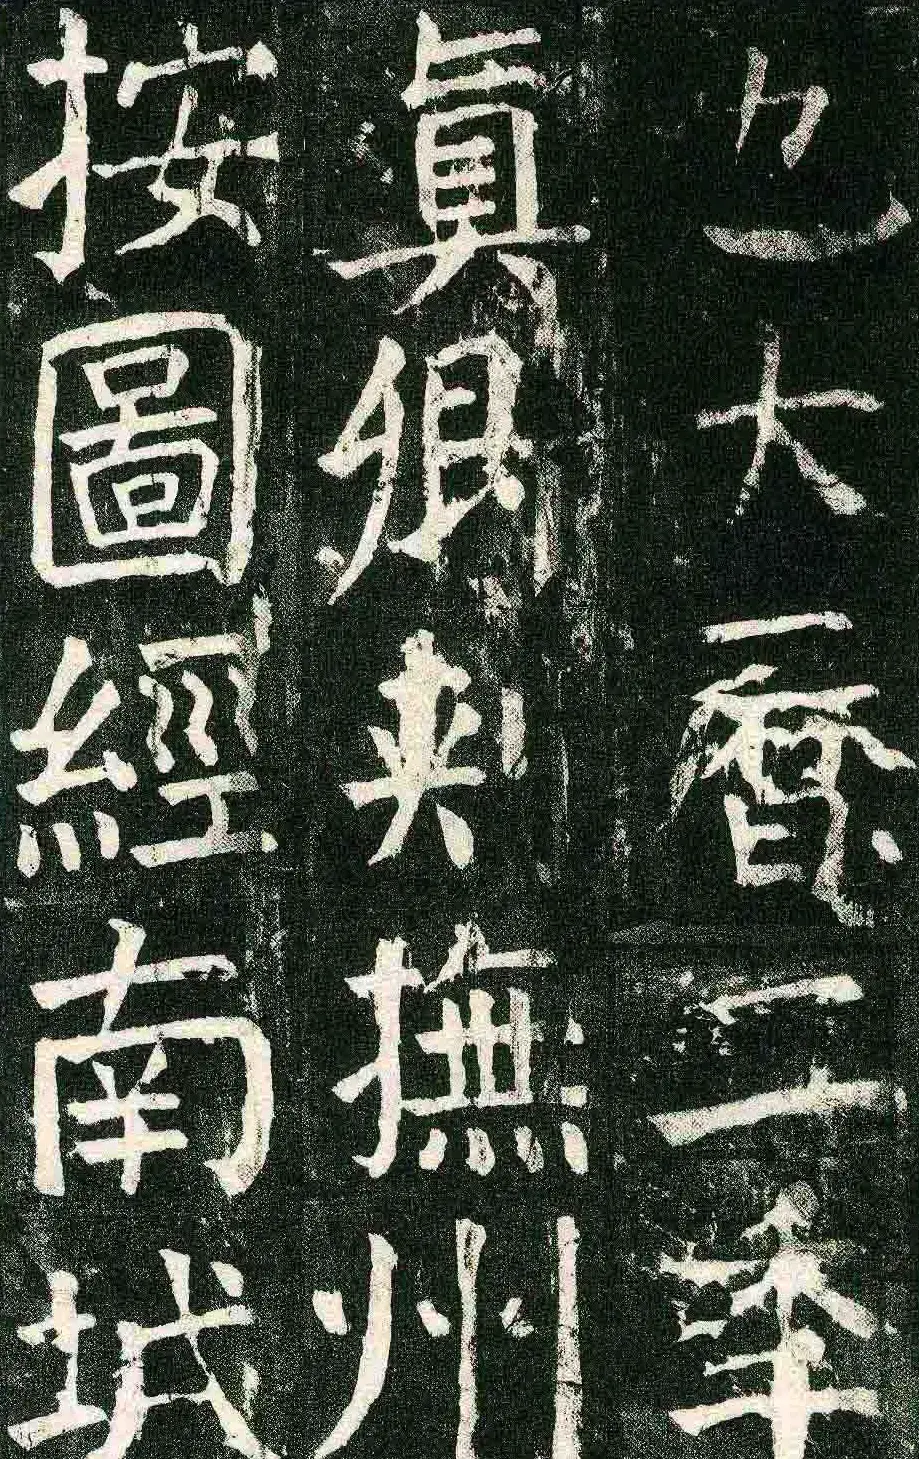 也大曆三年
真卿刺撫州
按圖經南城